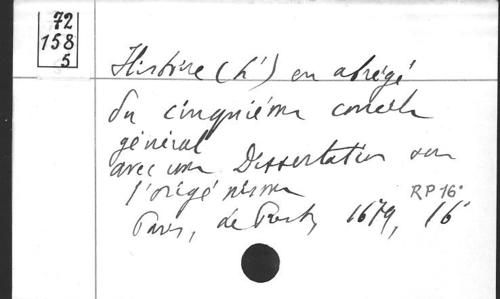 72
158
5
Histoire (L') en abrégé
du cinquième concile
général
avec une Dissertation sur
l'origénisme
RP 16°
Paris, de 1679, 16°